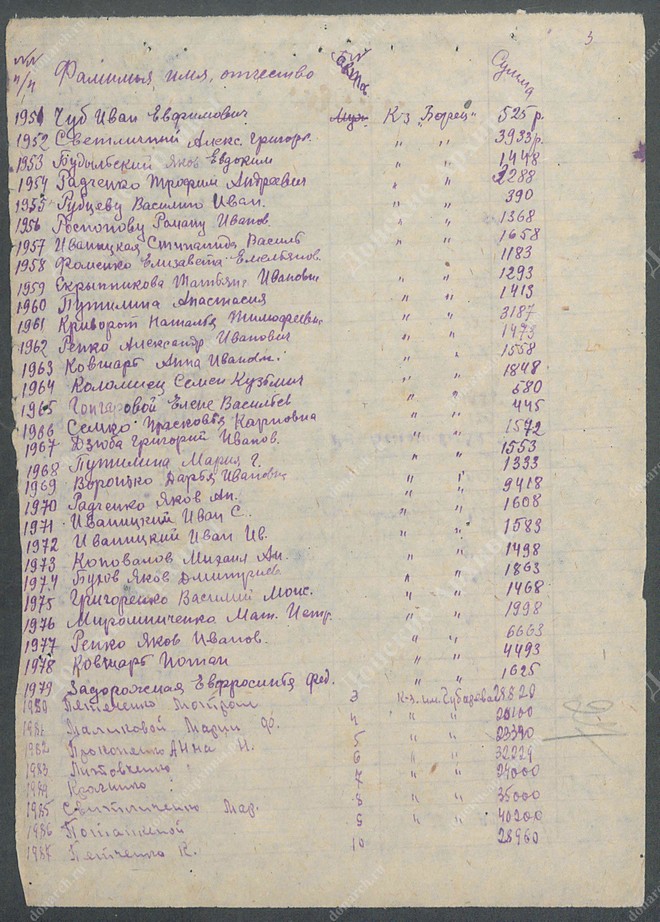 3
NN п/п Фамилья, имя, отчество Сумма
1951 Чуб Иван Евфимович К-з "Борец" 525 р.
1952 Светличный Алекс. Григорь. " " 3933 р.
1953 Будыльский Яков Евдоким " " 1448
1954 Радченко Трофим Андреевич " " 2288
1955 Губцеву Василию Иван. " " 390
1956 Роспопову Роману Иванов. " " 1368
1957 Иваницкая Степанида Василь " " 1658
1958 Фоменко Елизавета Емельянов. 1183
1959 Скрыпникова Татьяна Ивановн " " 1293
1960 Путилина Анастасия " " 1413
1961 Криворот Наталья Тимофеевн " " 3187
1962 Репко Александр Иванович " " 1473
1963 Ковшарь Анна Ивановн. " " 1558
1964 Коломиец Семен Кузьмич " " 1848
1965 Гончаровой Елене Васильев " " 680
1966 Семко Прасковья Карповна " " 445
1967 Дзюба Григорий Иванов. " " 1572
1968 Путилина Мария Г. " " 1553
1969 Дарья Ивановн " " 1333
1970 Радченко Яков Ан. " " 9418
1971 Иваницкий Иван С. " " 1608
1972 Иваницкий Иван Ив. " " 1583
1973 Коновалов Михаил Ан. " " 1498
1974 Бухов Яков Дмитриев " " 1863
1975 Григоренко Василий Моис. " " 1468
1976 Мирошниченко Мат. Петр. " " 1998
1977 Репко Яков Иванов. " " 6663
1978 Ковшарь Потап " " 4493
1979 Задорожная Евфросинья Фед. " " 1625
1980 3 К-з. им. Чубаря 28820
1981 Маликовой Марии Ф. 4 " "
1982 Прокопенко Анна И. 5 " " 23390
1983 Литовченко 6 " " 32229
1984 7 " " 24000
1985 Свитличенко Мар. 8 " " 35000
1986 9 " " 40200
1987 Петченко К. 10 28960
donarch.ru